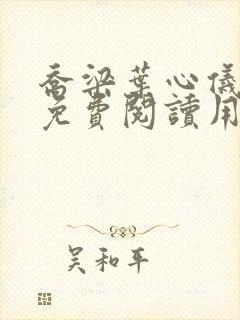 喬梁葉心儀
免費閱讀用
吳和平